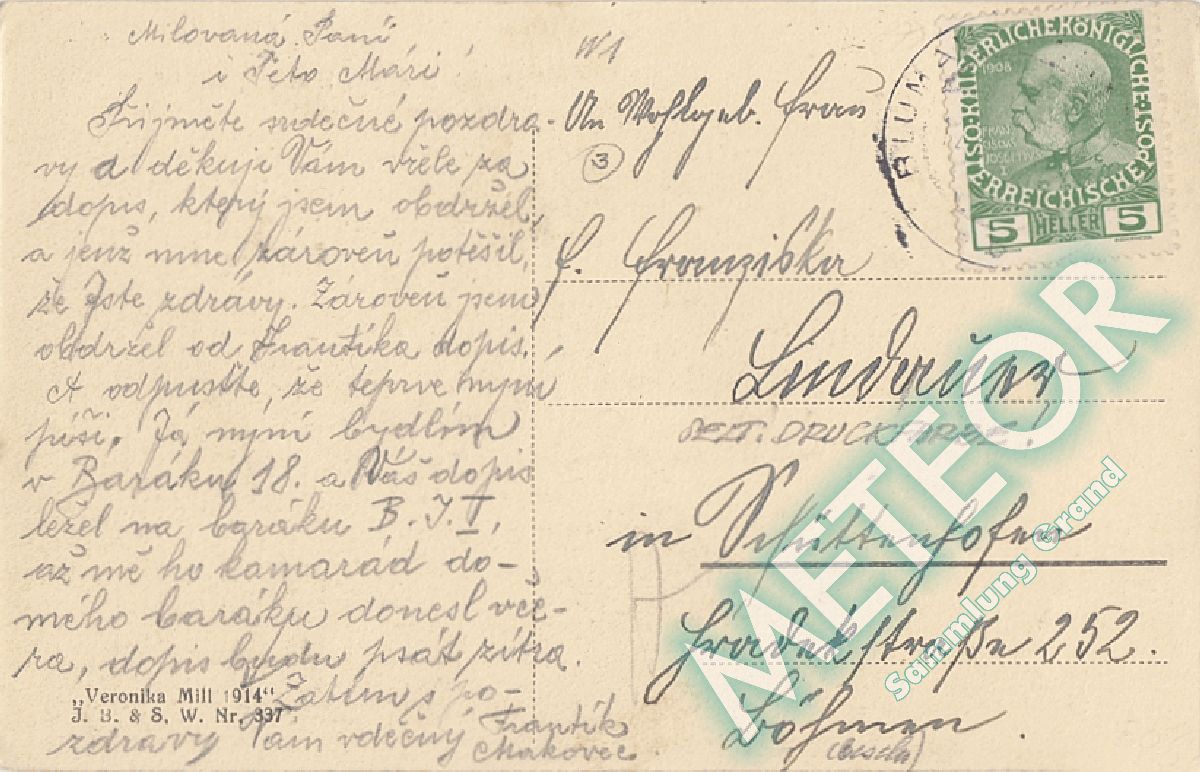 Milovaná Paní
i Teto Mári!
Přijměte vděčné pozdra-
vy a děkuji Vám vřele za
dopis, který jsem obdržel,
a jenž mne zároveň potěšil,
že Jste zdravy. Zároveň jsem
obdržel od Frantíka dopis.
A odpusťte, že teprve nyní
píši. Já nyní bydlím
v Baráku 18. a Váš dopis
ležel na baráku B. I. V,
až mě ho kamarád do
mého baráku donesl vče-
ra, dopis budu psát zítra.
Zatím s po-
zdravy Vám vděčný Frantík
Makovec
„Veronika Mill 1914“
J. B. & S. W. Nr. 337
An Wohlgeb. Frau
3
F. Franziska
Lindauer
in Schüttenhofen
Hradekstraße 252.
Böhmen
DRUCKFARBE!
BLUM
KAISERLICHE KÖNIGLICHE ÖSTERREICHISCHE POST
1908
5 HELLER 5
METEOR
Sammlung Grand